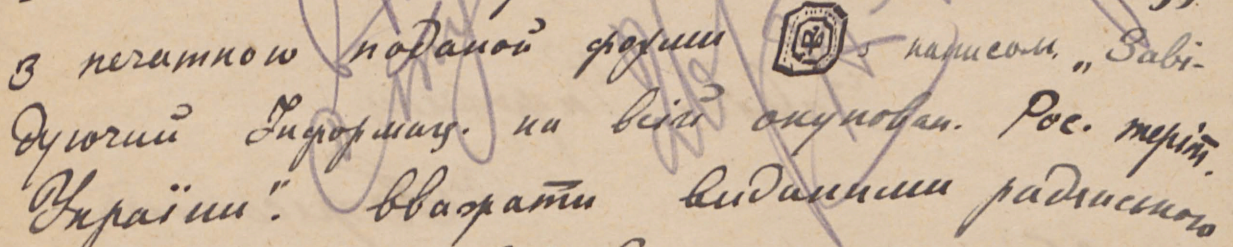 з печаткою поданой форми з написом „Заві-
дуючий Інформац. на всій окупован. Рос. теріт.
України". вважати виданими радянською